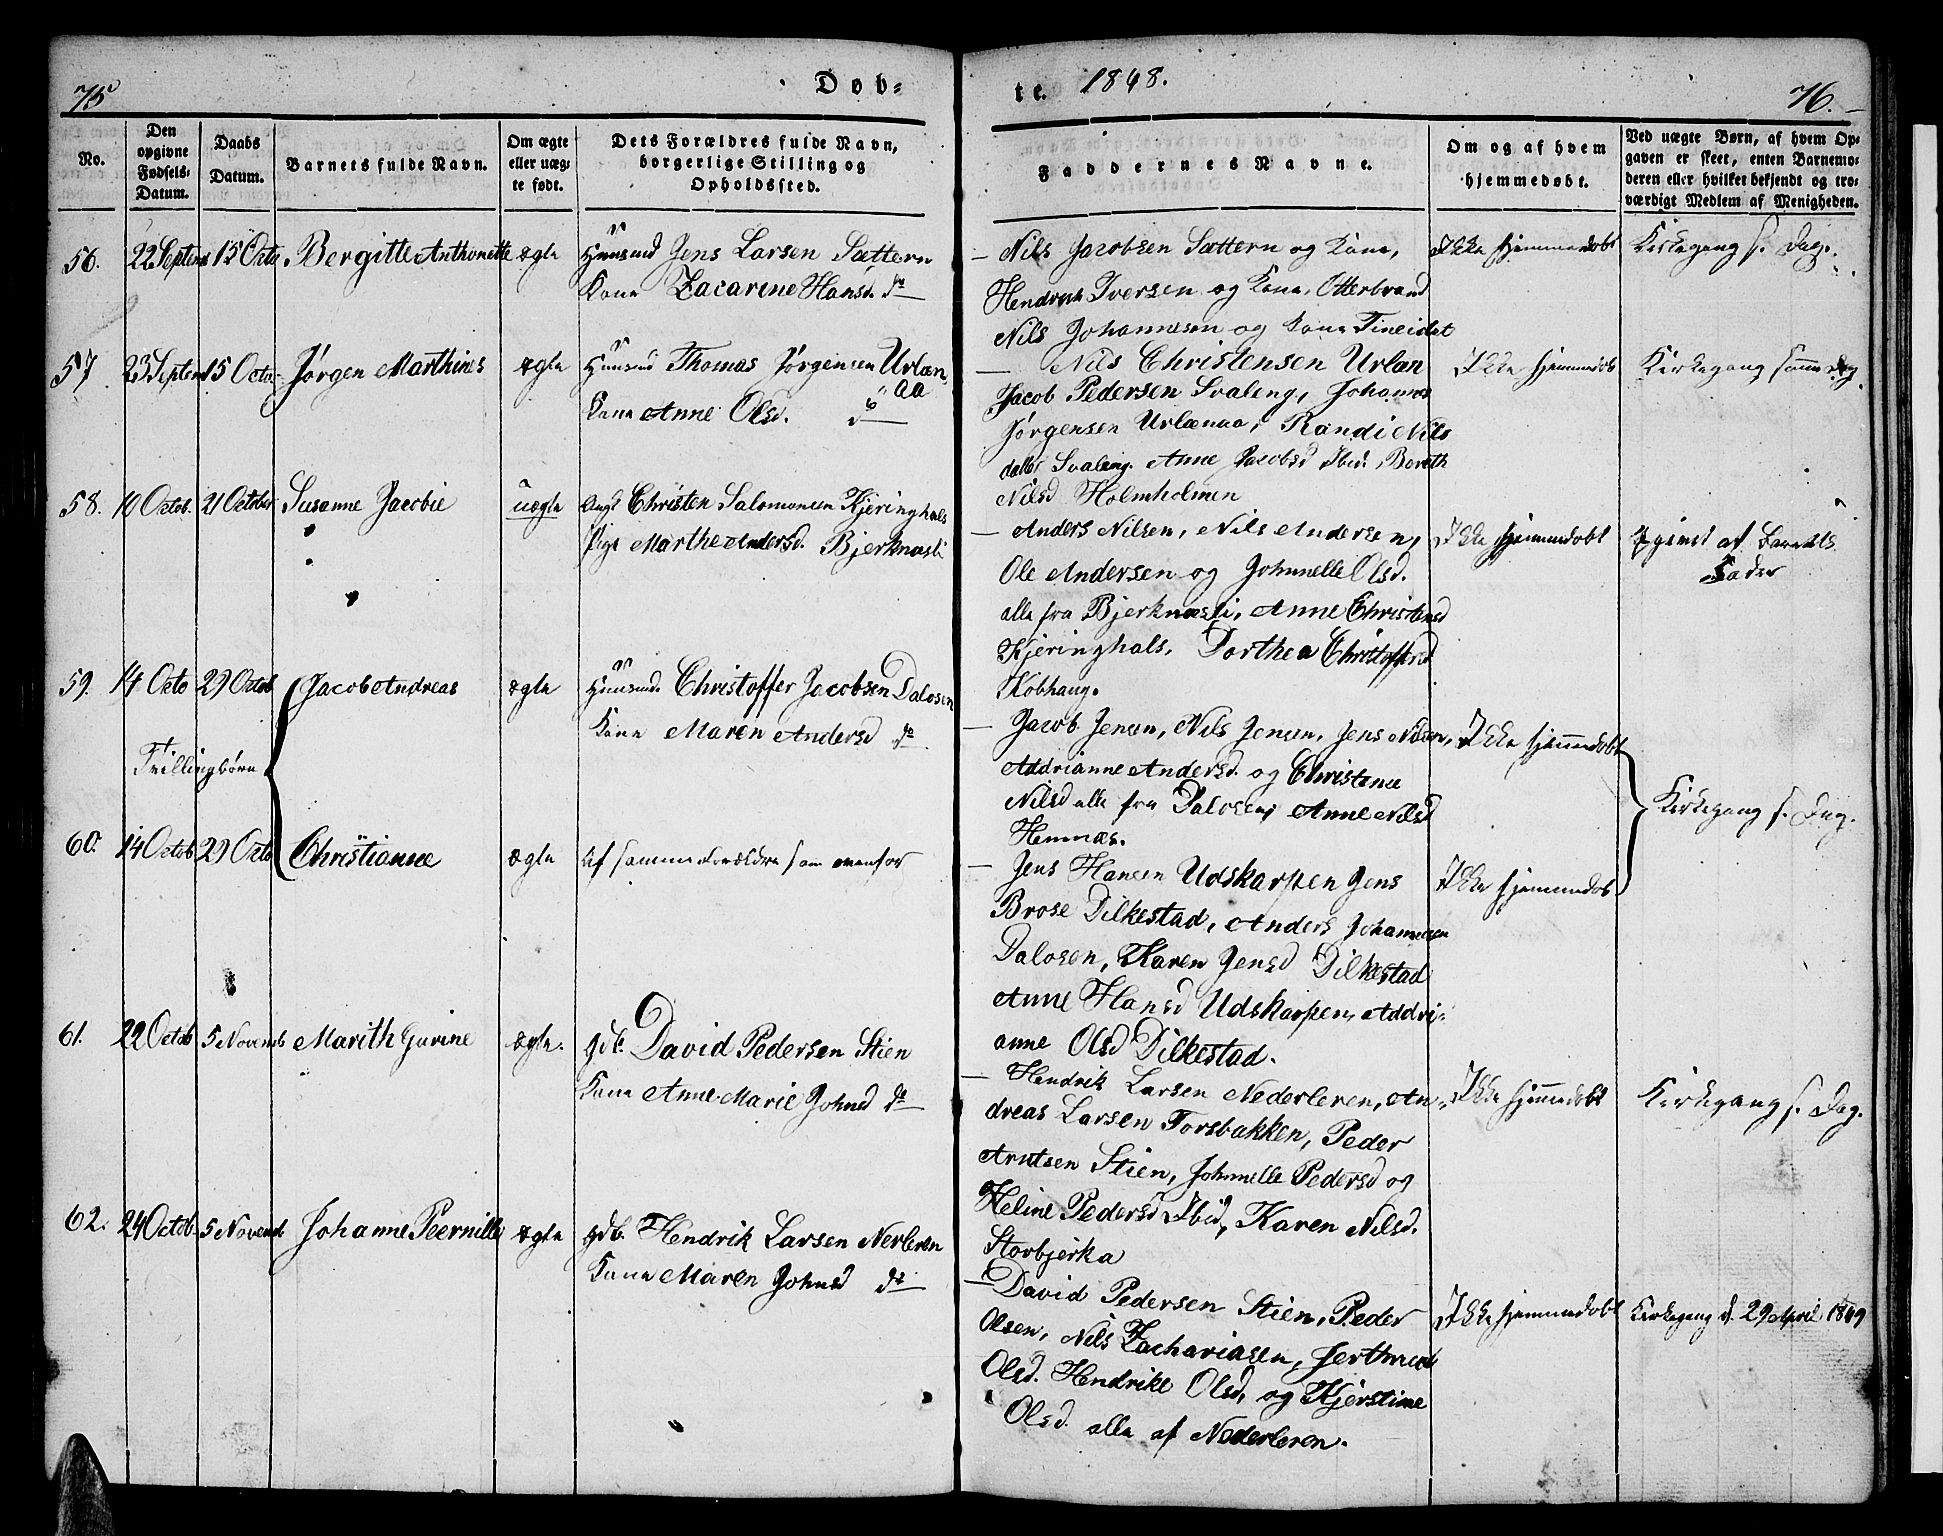 75
Døb-
te. 1848.
76.
No.
Den opgivne Fødsels-Datum.
Daabs Datum.
Barnets fulde Navn.
Om ægte eller uæg-te født.
Dets Forældres fulde Navn, borgerlige Stilling og Opholdssted.
Faddernes Navne.
Om og af hvem hjemmedøbt.
Ved uægte Børn, af hvem Op-
gaven er skeet, enten Barnemo-
deren eller hvilket bekjendt og tro-
værdigt Medlem af Menigheden.
56. 22 Septem 15 Octo Bergitte Anthonette ægte Huusmd Jens Larsen Sættern
Kone Zacarine Hansd. do
Nils Jacobsen Sættern og Kone,
Hendrik Iversen og Kone, Otterbrand
Nils Johannesen og Kone Tineidet
Ikke hjemmedøbt
Kirkegang s. Dag.
57 23 Septem 15 Octo Jørgen Marthines ægte Huusmd Thomas Jørgensen Urlan
aa
Kone Anne Olsd. do
Nils Christensen Urlan
Jacob Pedersen Svaleng, Johannes
Jørgensen Urlanaa, Randi Nils
datter Svaleng. Anne Jacobsd Ibid. Bereth
Nilsd Holmholmen
Ikke hjemmedøb
Kirkegang samme Dag
58. 10 Octob. 21 October Susanne Jacobie uægte Ungk Christen Salomonsen Kjeringhals
Pige Marthe Andersd. Bjerknæsli
Anders Nilsen, Nils Andersen,
Ole Andersen og Johnnelle Olsd.
alle fra Bjerknæsli, Anne Christensd
Kjeringhals, Dorthea Christoffersd
Kobhaug.
Ikke hjemmedøbt
af Barnets
Fader
59. 14 Octo 29 Octob Jacob Andreas ægte Huusmd. Christoffer Jacobsen Dalosen
Kone Maren Andersd do
Tvillingbørn
Jacob Jensen, Nils Jensen, Jens Nilsen,
Addrianne Andersd. og Christense
Nilsd alle fra Dalosen, Anne Nilsd
Hemnæs.
Ikke hjemmedøbt
Kirkegang s. Dag.
60. 14 Octob 29 Octo Christianne ægte Af samme Forældre som ovenfor
Jens Hansen Udskarpen Jens
Brose Dilkestad, Anders Johannesen
Dalosen, Karen Jensd Dilkestad
Anne Hansd Udskarpen, Addri-
anne Olsd Dilkestad.
Ikke hjemmedøb
61. 22 Octob 5 Novemb Marith Gurine ægte. Gdb. David Pedersen Stien
Kone Anne Marie Johnsd do
Hendrik Larsen Nederleren, An-
dreas Larsen Forsbakken, Peder
Arntsen Stien, Johnnelle Pedersd og
Heline Pedersd Ibid, Karen Nilsd.
Storbjerka
Ikke hjemmedøbt
Kirkegang s. Dag.
62. 24 Octob. 5 Novemb Johanne Peernille ægte Gdb. Hendrik Larsen Nerleren
Kone Maren Johnsd do
David Pedersen Stien, Peder
Olsen, Nils Zachariasen, Jerthrud
Olsd. Hendrike Olsd, og Kjerstine
Olsd. alle af Nederleren.
Ikke hjemmedøbt
Kirkegang d. 29 April 1849